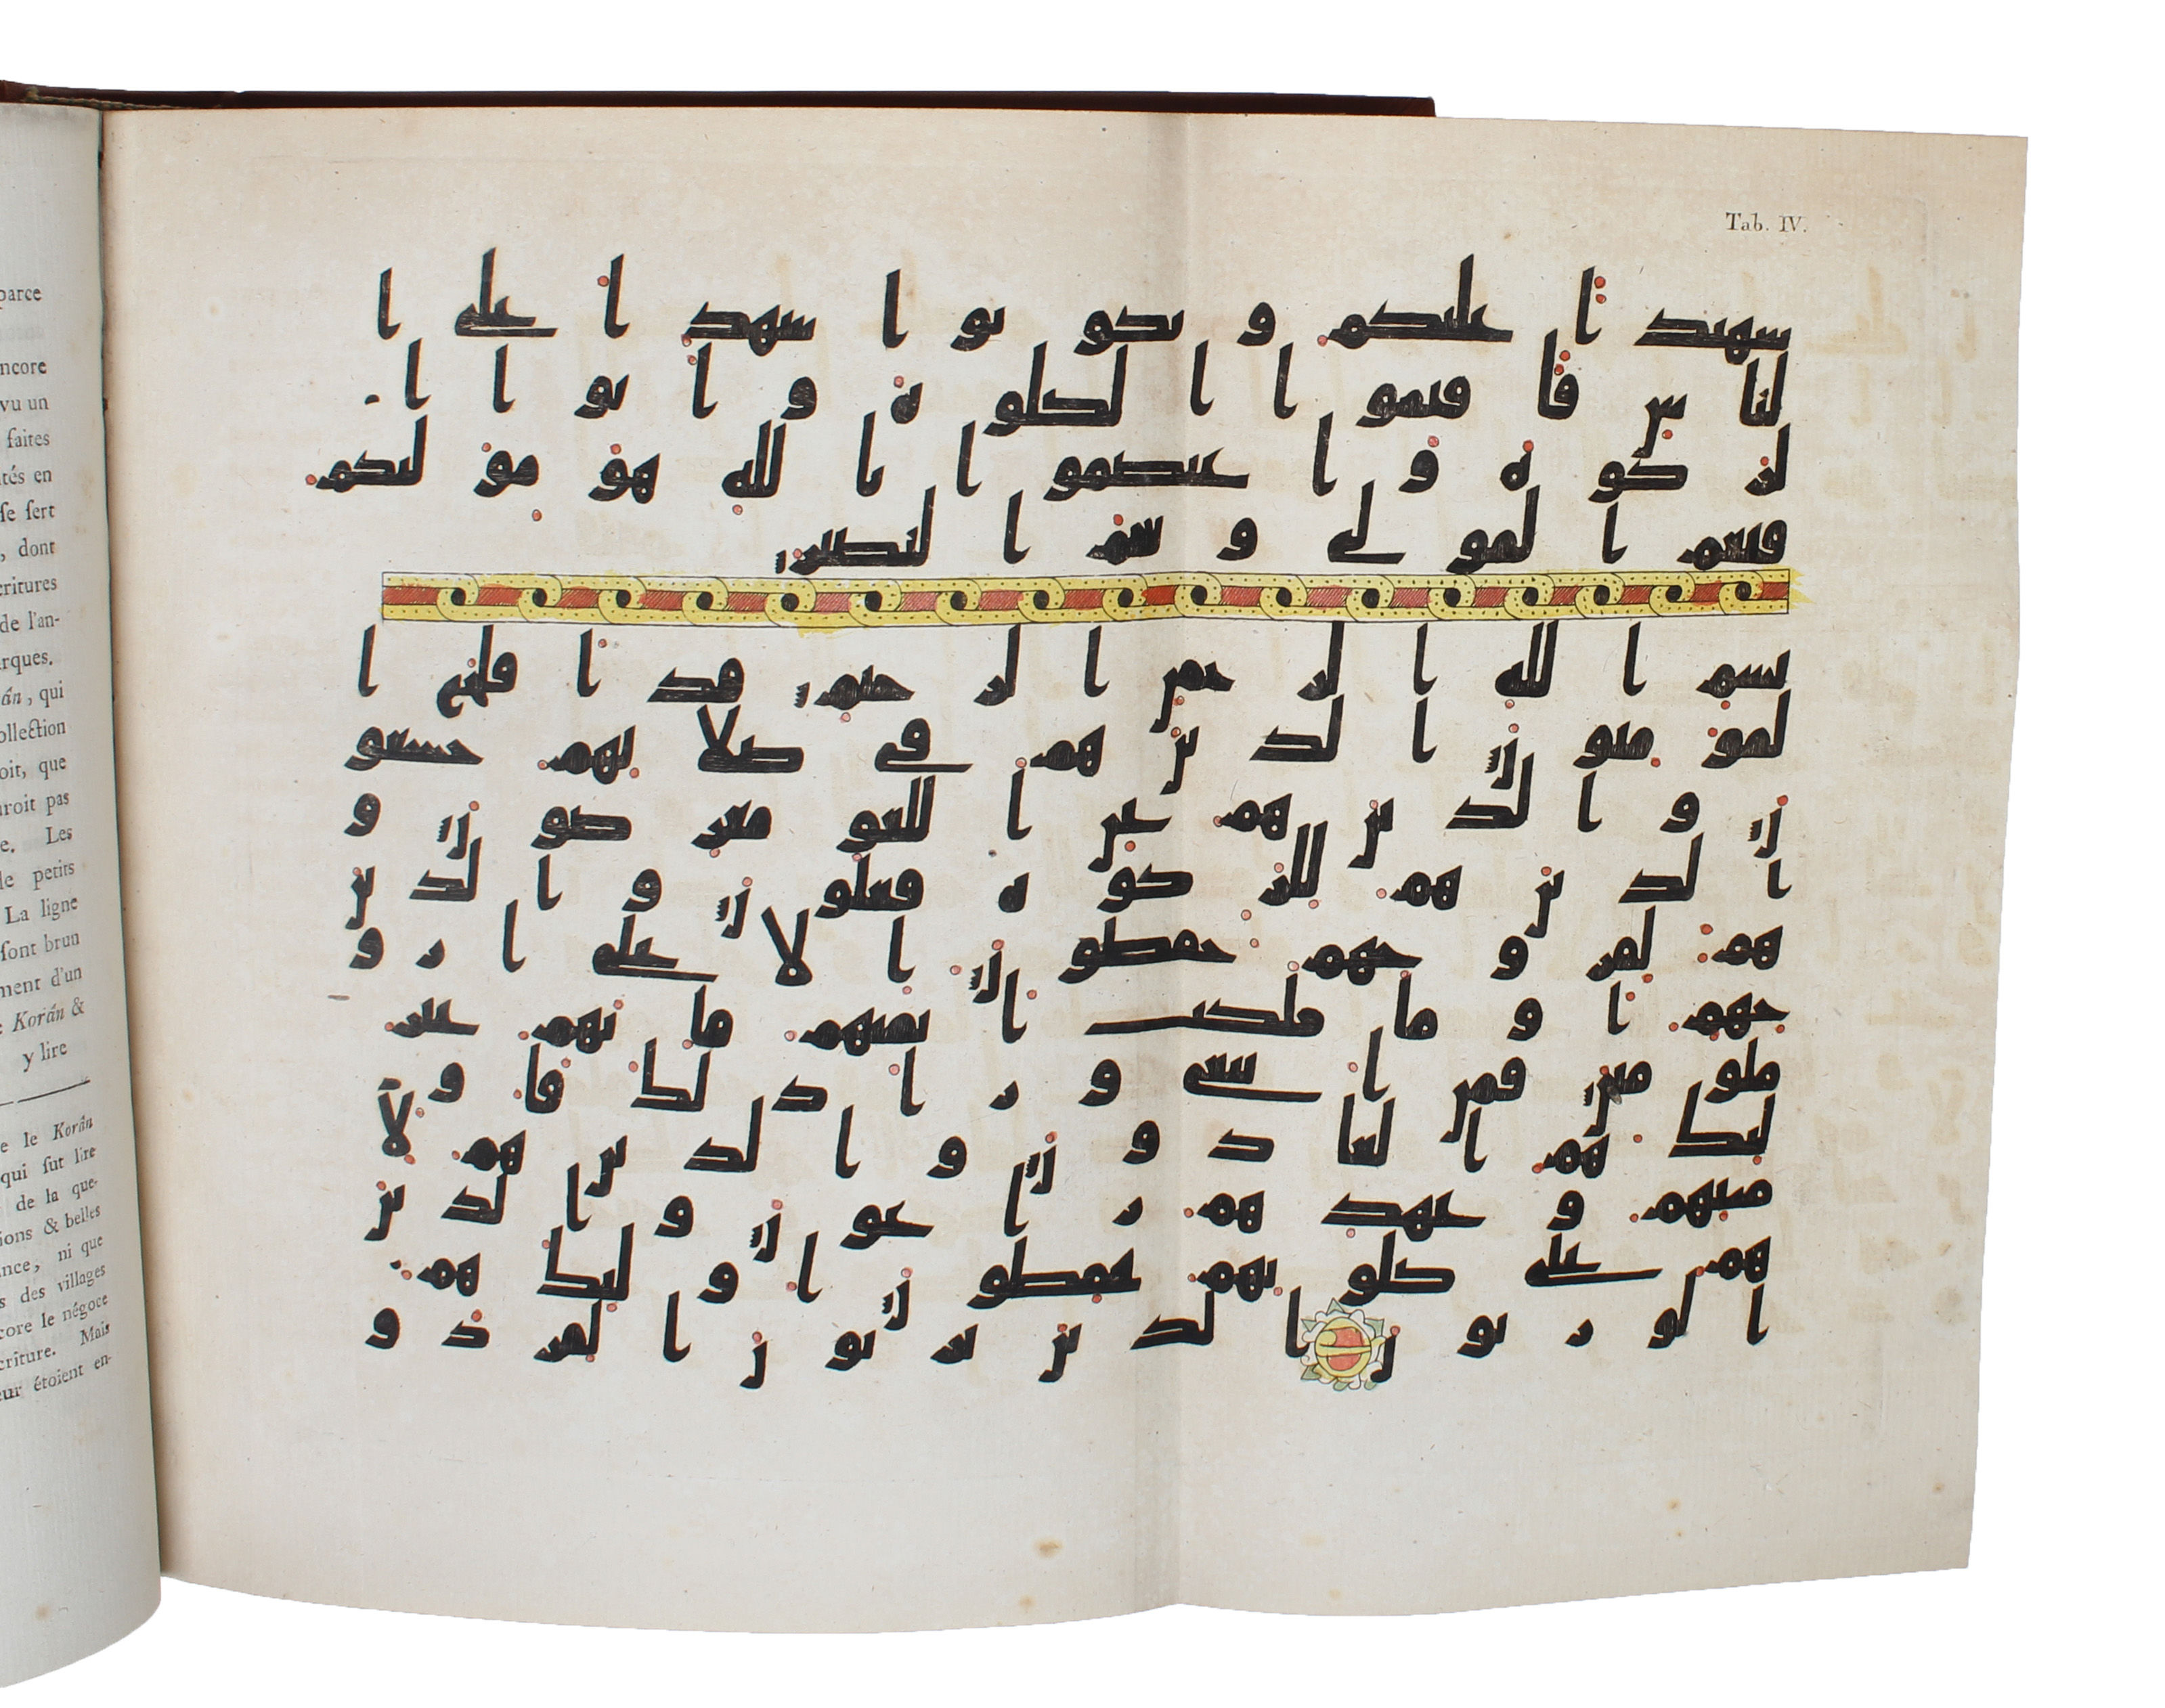 parce
ncore
vu un
faites
tés en
ſe ſert
, dont
critures
de l'an-
rques.
án, qui
ollection
oit, que
aroit pas
e. Les
le petits
La ligne
ſont brun
ment d'un
Korán &
y lire
e le Korân
qui ſut lire
de la que-
ions & belles
ance, ni que
s des villages
core le négoce
criture. Mais
eur étoient en-
Tab. IV.
شهيدا عليكم وتكونوا شهدا على ا
لناس فاقيموا الصلوة واتوا ا
لزكوة واعتصموا بالله هو موليكم
فنعم المولى ونعم النصير
بسم الله الرحمن الرحيم قد افلح ا
لمومنون الذين هم في صلاتهم خشعو
ن والذين هم عن اللغو معرضون و
الذين هم للزكوة فعلون والذين
هم لفروجهم حفظون الا على ازو
جهم او ما ملكت ايمنهم فانهم غير
ملومين فمن ابتغى ورا ذلك فاو
ليك هم العادون والذين هم لا
منتهم وعهدهم راعون والذين
هم على صلوتهم يحفظون اوليك هم
الورثون الذين يرثون الفردو